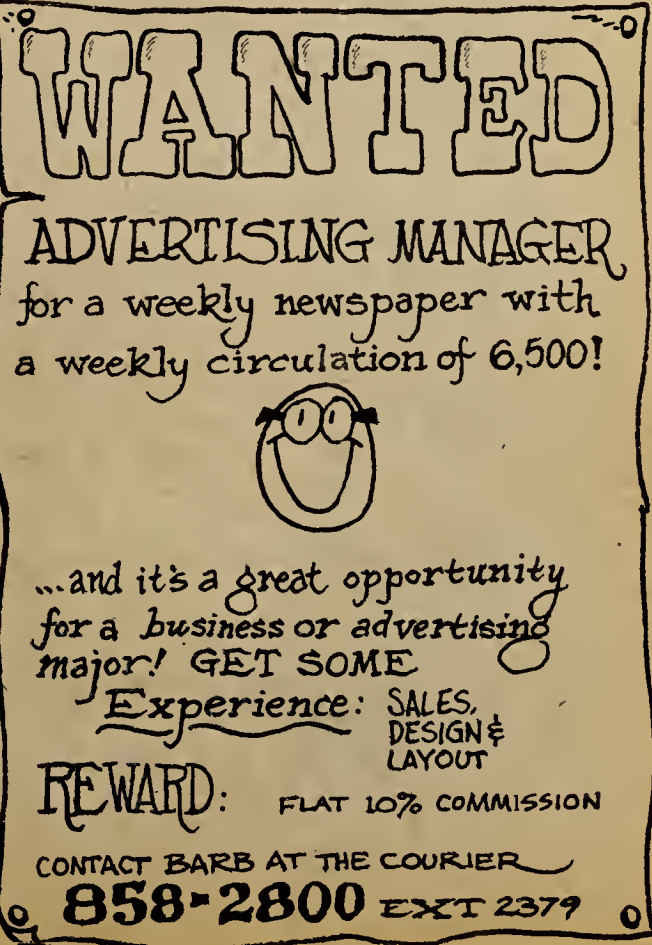 WANTED
ADVERTISING MANAGER
for a weekly newspaper with
a weekly circulation of 6,500!
...and it's a great opportunity
for a business or advertising
major! GET SOME
Experience: SALES,
DESIGN &
LAYOUT
REWARD: FLAT 10% COMMISSION
CONTACT BARB AT THE COURIER
858-2800 EXT 2379